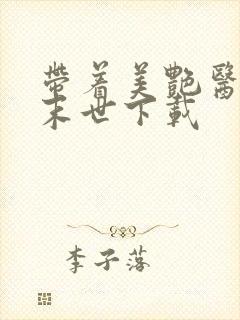 帶着美艷醫
末世下載
李子落